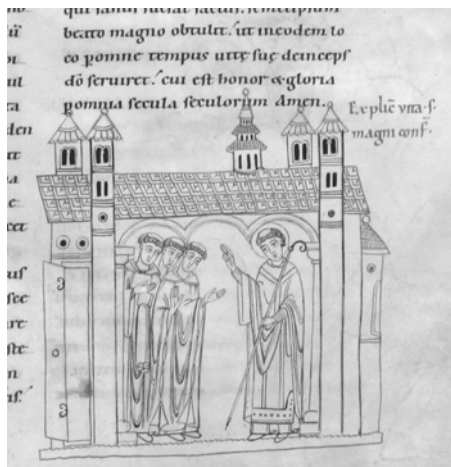 beato magno obtulit. ut in eodem lo
co pomne tempus uitę suę deinceps
dō seruiret. cui est honor & gloria
pomnia secula seculorum Amen.
Explic̄ uita .s.
magni conf̄.
ul
ta
den
a
us
re
ste
n